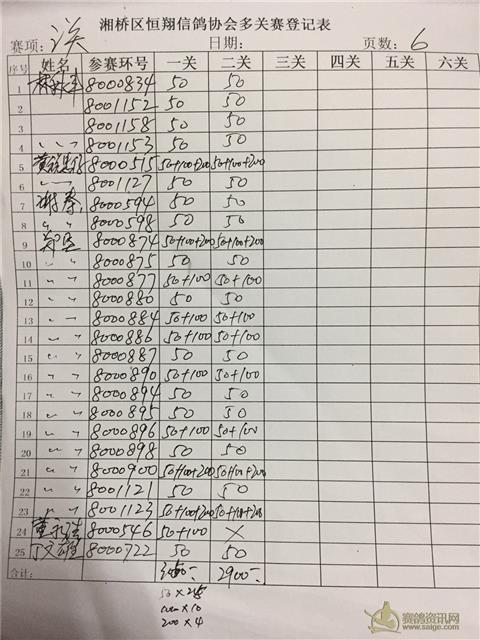 湘桥区恒翔信鸽协会多关赛登记表
赛项: 日期: 页数: 6
序号 姓名 参赛环号 一关 二关 三关 四关 五关 六关
1 8000834 50 50
2 8001152 50 50
3 8001158 50 50
4 〃 〃 8001153 50 50
5 8000515 50+100+200 50+100+200
6 〃 〃 8001127 50 50
7 谢泰 8000594 50 50
8 〃 〃 8000598 50 50
9 8000874 50+100+200 50+100+200
10 〃 〃 8000875 50 50
11 〃 〃 8000877 50+100 50+100
12 〃 〃 8000880 50 50
13 〃 〃 8000884 50+100 50+100
14 〃 〃 8000886 50+100 50+100
15 〃 〃 8000887 50 50
16 〃 〃 8000890 50+100 50+100
17 〃 〃 8000894 50 50
18 〃 〃 8000895 50 50
19 〃 〃 8000896 50+100 50+100
20 〃 〃 8000898 50 50
21 〃 〃 8000900 50+100+200 50+100+200
22 〃 〃 8001121 50 50
23 〃 〃 8001123 50+100+200 50+100+200
24 8000546 50+100 ×
25 丁文雄 8000722 50 50
合计: 2900
50 × 25
100 × 10
200 × 4
赛鸽资讯网
www.saige.com